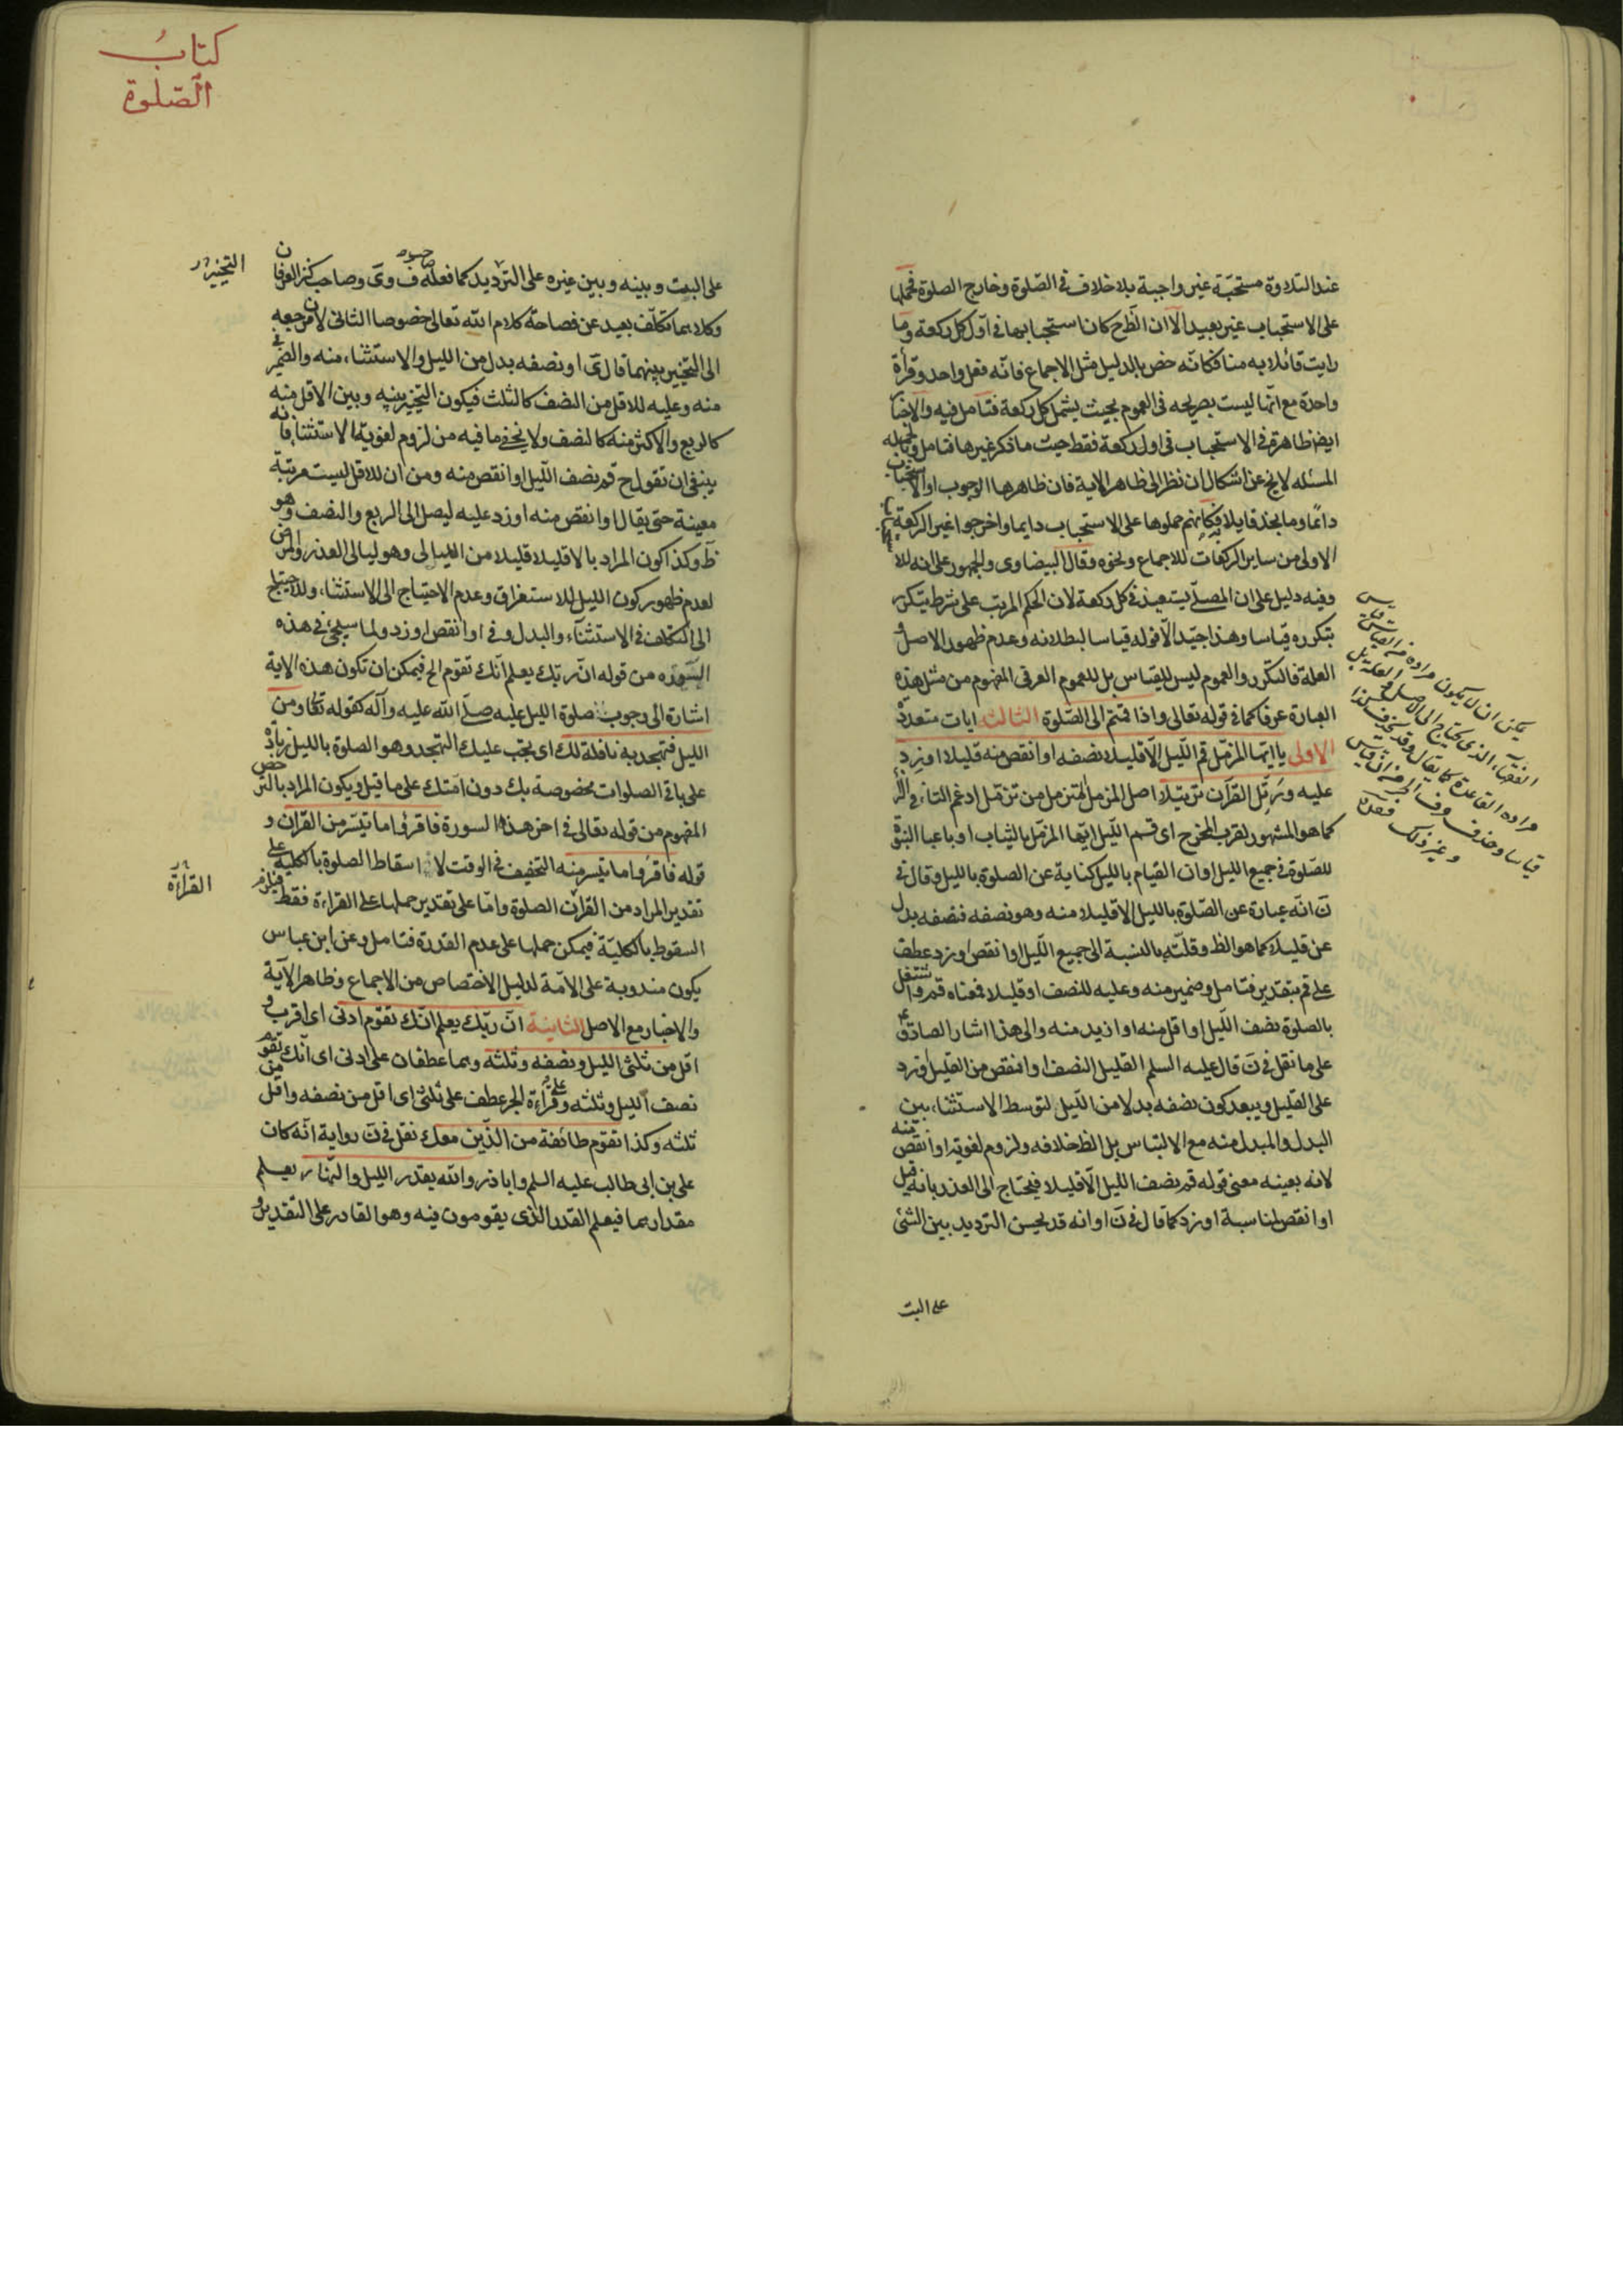 عند التلاوة مستحبّة غير واجبة بلا خلاف فى الصّلوة وخارج الصلوة فحملها
على الاستحباب غير بعيد الا ان الظّ ح كان استحبابها فى اوّل كل ركعة وما
رايت قائلا به منا فكانّه خص بالدليل مثل الاجماع فانّه فعل واحد وقرأة
واحدة مع انّها ليست بصريحه فى العموم بحيث يشمل كل ركعة فتامل فيه والاخبا
ايضا ظاهرة فى الاستحباب فى اول ركعة فقط حيث ما ذكر غيرها فتامل وبالجمله
المسئله لا يخ عن اشكال ان نظر الى ظاهر الاية فان ظاهرها الوجوب او الاستحباب
دائما وما نجد قايلا به فكانهم حملوها على الاستحباب دايما واخرجوا غير الركعة
الاولى من ساير الركعات للاجماع ونحوه وقال البيضاوى والجمهور على انه للا
وفيه دليل على ان المصلّى يستعيذ فى كل ركعة لان الحكم المرتب على شرط يتكرر
بتكرره قياسا وهذا جيّد الّا قوله قياسا لبطلانه وعدم ظهور الاصل و
العلة فالتكرر والعموم ليس للقياس بل للعموم العرفى المفهوم من مثل هذه
العبارة عرفا كما فى قوله تعالى واذا قمتم الى الصّلوة الثالثه ايات متعددة
الاولى يا ايّها المزمّل قم اللّيل الّا قليلا نصفه او انقص منه قليلا او زد
عليه ورتّل القرآن ترتيلا اصل المزمل المتزمل من تزمّل ادغم التاء فى الزاء
كما هو المشهور لقرب المخرج اى قم اللّيل ايّها المزمّل بالثياب او باعباء النبوة
للصّلوة فى جميع الليل او ان القيام بالليل كناية عن الصلوة بالليل وقال فى
نَ انّه عبارة عن الصّلوة بالليل الا قليلا منه وهو نصفه فنصفه بدل
عن قليلا كما هو الظ وقلّته بالنسبة الى جميع اللّيل او انقص او زد عطف
على قم بتقدير فتامل وضمير منه وعليه للنصف او قليلا فمعناه قم واشتغل
بالصلوة نصف اللّيل او اقل منه او ازيد منه والى هذا اشار الصادق ع
على ما نقل فى نَ قال عليه السلم القليل النصف او انقص من القليل او زد
على القليل ويبعد كون نصفه بدلا من اللّيل لتوسط الاستثناء بين
البدل والمبدل منه مع الالتباس بل الظ خلافه ولزوم لغوية او انقص منه
لانه بعينه معنى قوله قم نصف الليل الّا قليلا فيحتاج الى العذر بانه قيل
او انقص لمناسبة او زد كما قال فى نَ او انه قد يحسن الترديد بين الشئ
على البت
يمكن ان لا يكون مراده من القياس
الفقهاء الذى يحتاج الى الاصل
مراده القاعدة كما يقال
وغير ذلك
كتابُ
الصّلوة
على البت وبينه وبين غيره على الترديد كما فعله ف وى وصاحب كنز العرفان
وكلاهما تكلّف بعيد عن فصاحة كلام الله تعالى خصوصا الثانى لان مرجعه
الى التخيير بينهما قال ى او نصفه بدل من الليل والاستثناء منه والضمير فى
منه وعليه للاقل من النصف كالثلث فيكون التخيير بينه وبين الاقل منه
كالربع والاكثر منه كالنصف ولا يخفى ما فيه من لزوم لغوية الاستثناء فانه
ينبغى ان تقول ح قم نصف اللّيل او انقص منه ومن ان للاقل ليست مرتبة
معينة حتى يقال او انقص منه او زد عليه ليصل الى الربع والنصف وهو
ظَ وكذا كون المراد بالا قليلا قليلا من الليالى وهو ليالى العذر والمرض
لعدم ظهور كون الليل للاستغراق وعدم الاحتياج الى الاستثناء وللاحتياج
الى التكلف فى الاستثناء والبدل وفى او انقص او زد ولما سيجئ فى هذه
السّورَه من قوله انّ ربّك يعلم انّك تقوم الخ فيمكن ان تكون هذه الاية
اشارة الى وجوب صلوة الليل عليه صلّى الله عليه وآله كقوله تعالى ومن
الليل فتهجد به نافلة لك اى يجب عليك التهجد وهو الصلوة بالليل زيادة
على باقى الصلوات مخصوصة بك دون امّتك على ما قيل ويكون المراد بالترخص
المفهوم من قوله تعالى فى اخر هذه السورة فاقرؤا ما تيسّر من القرآن و
قوله فاقرؤا ما تيسر منه التخفيف فى الوقت لا اسقاط الصلوة بالكلية على
تقدير المراد من القرآن الصلوة وامّا على تقدير حملها على القراءة فقط فيلزم
السقوط بالكليّة فيمكن حملها على عدم القدرة فتامل وعن ابن عباس
يكون مندوبة على الامّة لدليل الاختصاص من الاجماع وظاهر الآية
والاخبار مع الاصل الثانية انّ ربّك يعلم انّك تقوم ادنى اى اقرب و
اقل من ثلثى الليل ونصفه وثلثه وهما عطفان على ادنى اى انّك تقوم
نصف الليل وثلثه وعلى قراءة الجر عطف على ثلثى اى اقل من نصفه واقل من
ثلثه وكذا تقوم طائفة من الذّين معك نقل فى نَ رواية انّه كان
على بن ابى طالب عليه السلم وابا ذر والله يقدر الليل والنّهار يعلم
مقدارهما فيعلم القدر الذى يقومون فيه وهو القادر على التقدير و
التخيير
القراءة